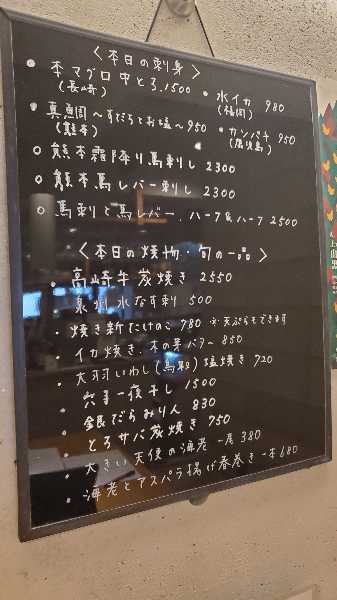 〈本日の刺身〉
• 本マグロ中とろ 1500
(長崎)
• 水イカ 980
(福岡)
• 真鯛〜すだちとお塩〜950
(熊本)
• カンパチ 950
(鹿児島)
○ 熊本霜降り馬刺し 2300
○ 熊本馬レバー刺し 2300
○ 馬刺しと馬レバー.ハーフ&ハーフ 2500
〈本日の焼物・旬の一品〉
• 高崎牛炭焼き 2550
• 泉州水なす刺 500
• 焼き新たけのこ 780 ※天ぷらもできます
• イカ焼き.木の芽バター 850
• 大羽いわし(鳥取)塩焼き 720
• 穴子一夜干し 1500
• 銀だらみりん 830
• とろサバ炭焼き 750
• 大きい天使の海老 一尾 380
• 海老とアスパラ揚げ春巻き 一本 680